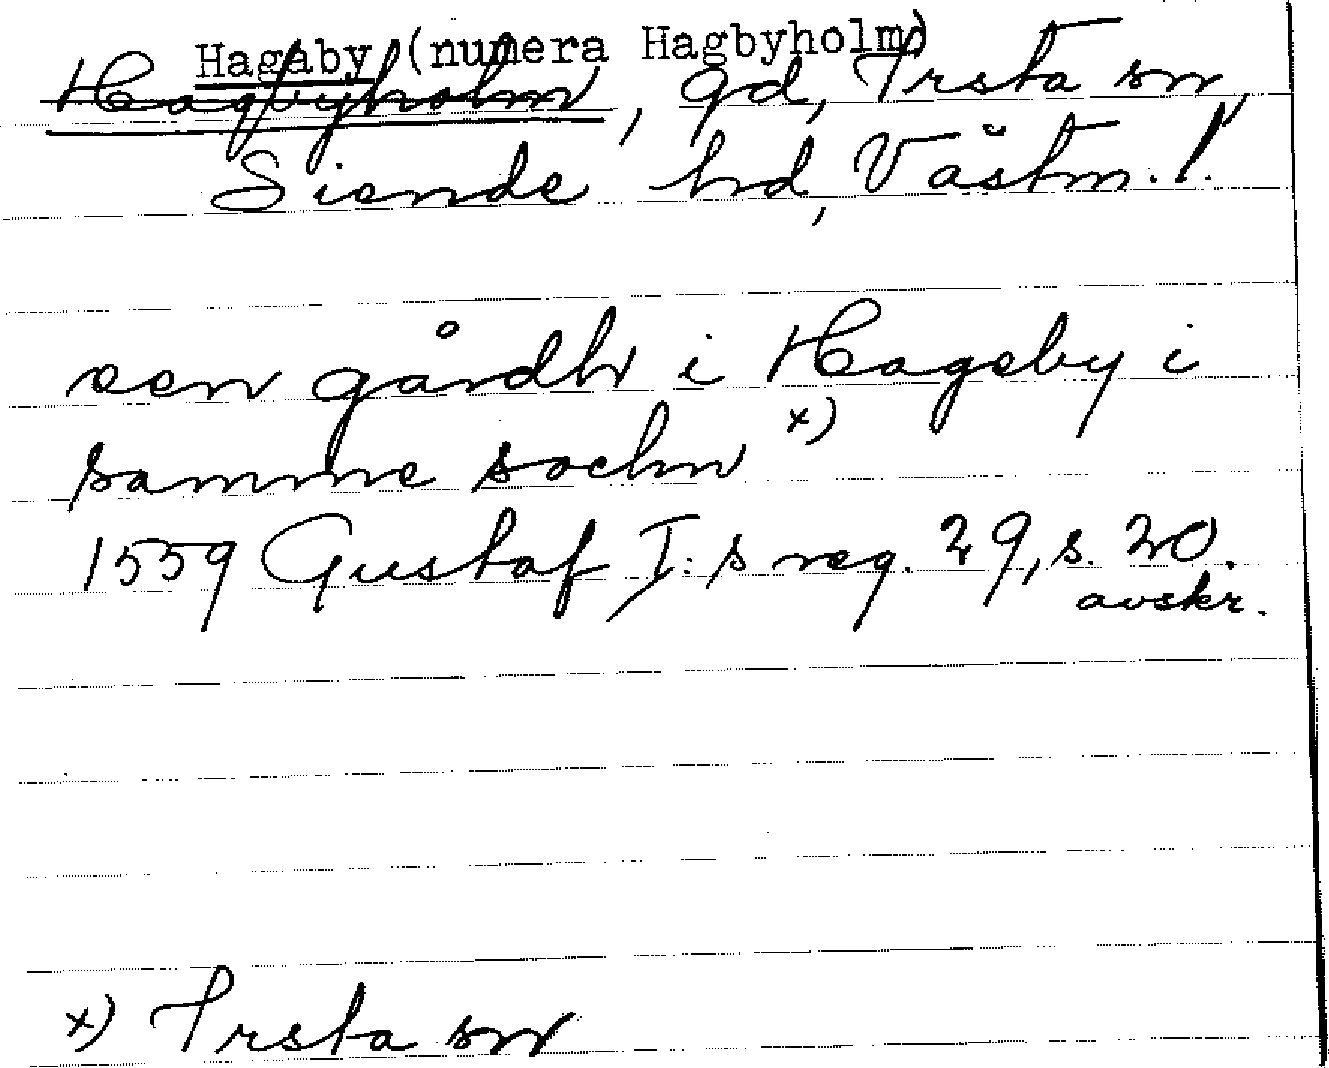 Hagaby (numera Hagbyholm)
Hagbyholm, gd, Irsta sn,
Siende hd, Västm. l.
een gårdh i Hageby i
samme sochn x)
1559 Gustaf I:s reg. 29, s. 20.
avskr.
x) Irsta sn